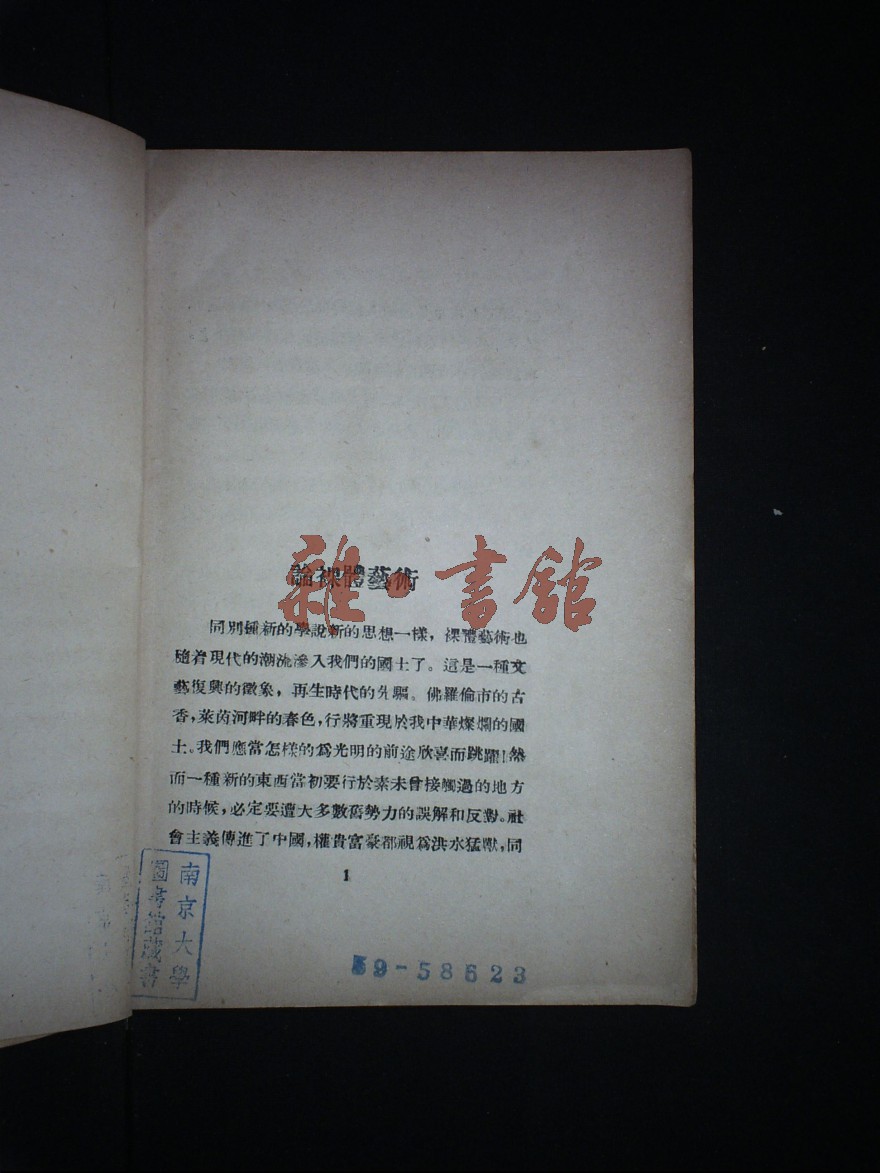 論裸體藝術
雜·書館
同別種新的學說新的思想一樣，裸體藝術也
隨着現代的潮流滲入我們的國土了。這是一種文
藝復興的徵象，再生時代的先驅。佛羅倫市的古
香，萊茵河畔的春色，行將重現於我中華燦爛的國
土。我們應當怎樣的爲光明的前途欣喜而跳躍！然
而一種新的東西當初要行於素未曾接觸過的地方
的時候，必定要遭大多數舊勢力的誤解和反對。社
會主義傳進了中國，權貴富豪都視爲洪水猛獸，同
1
南京大學
圖書館藏書
59-58623